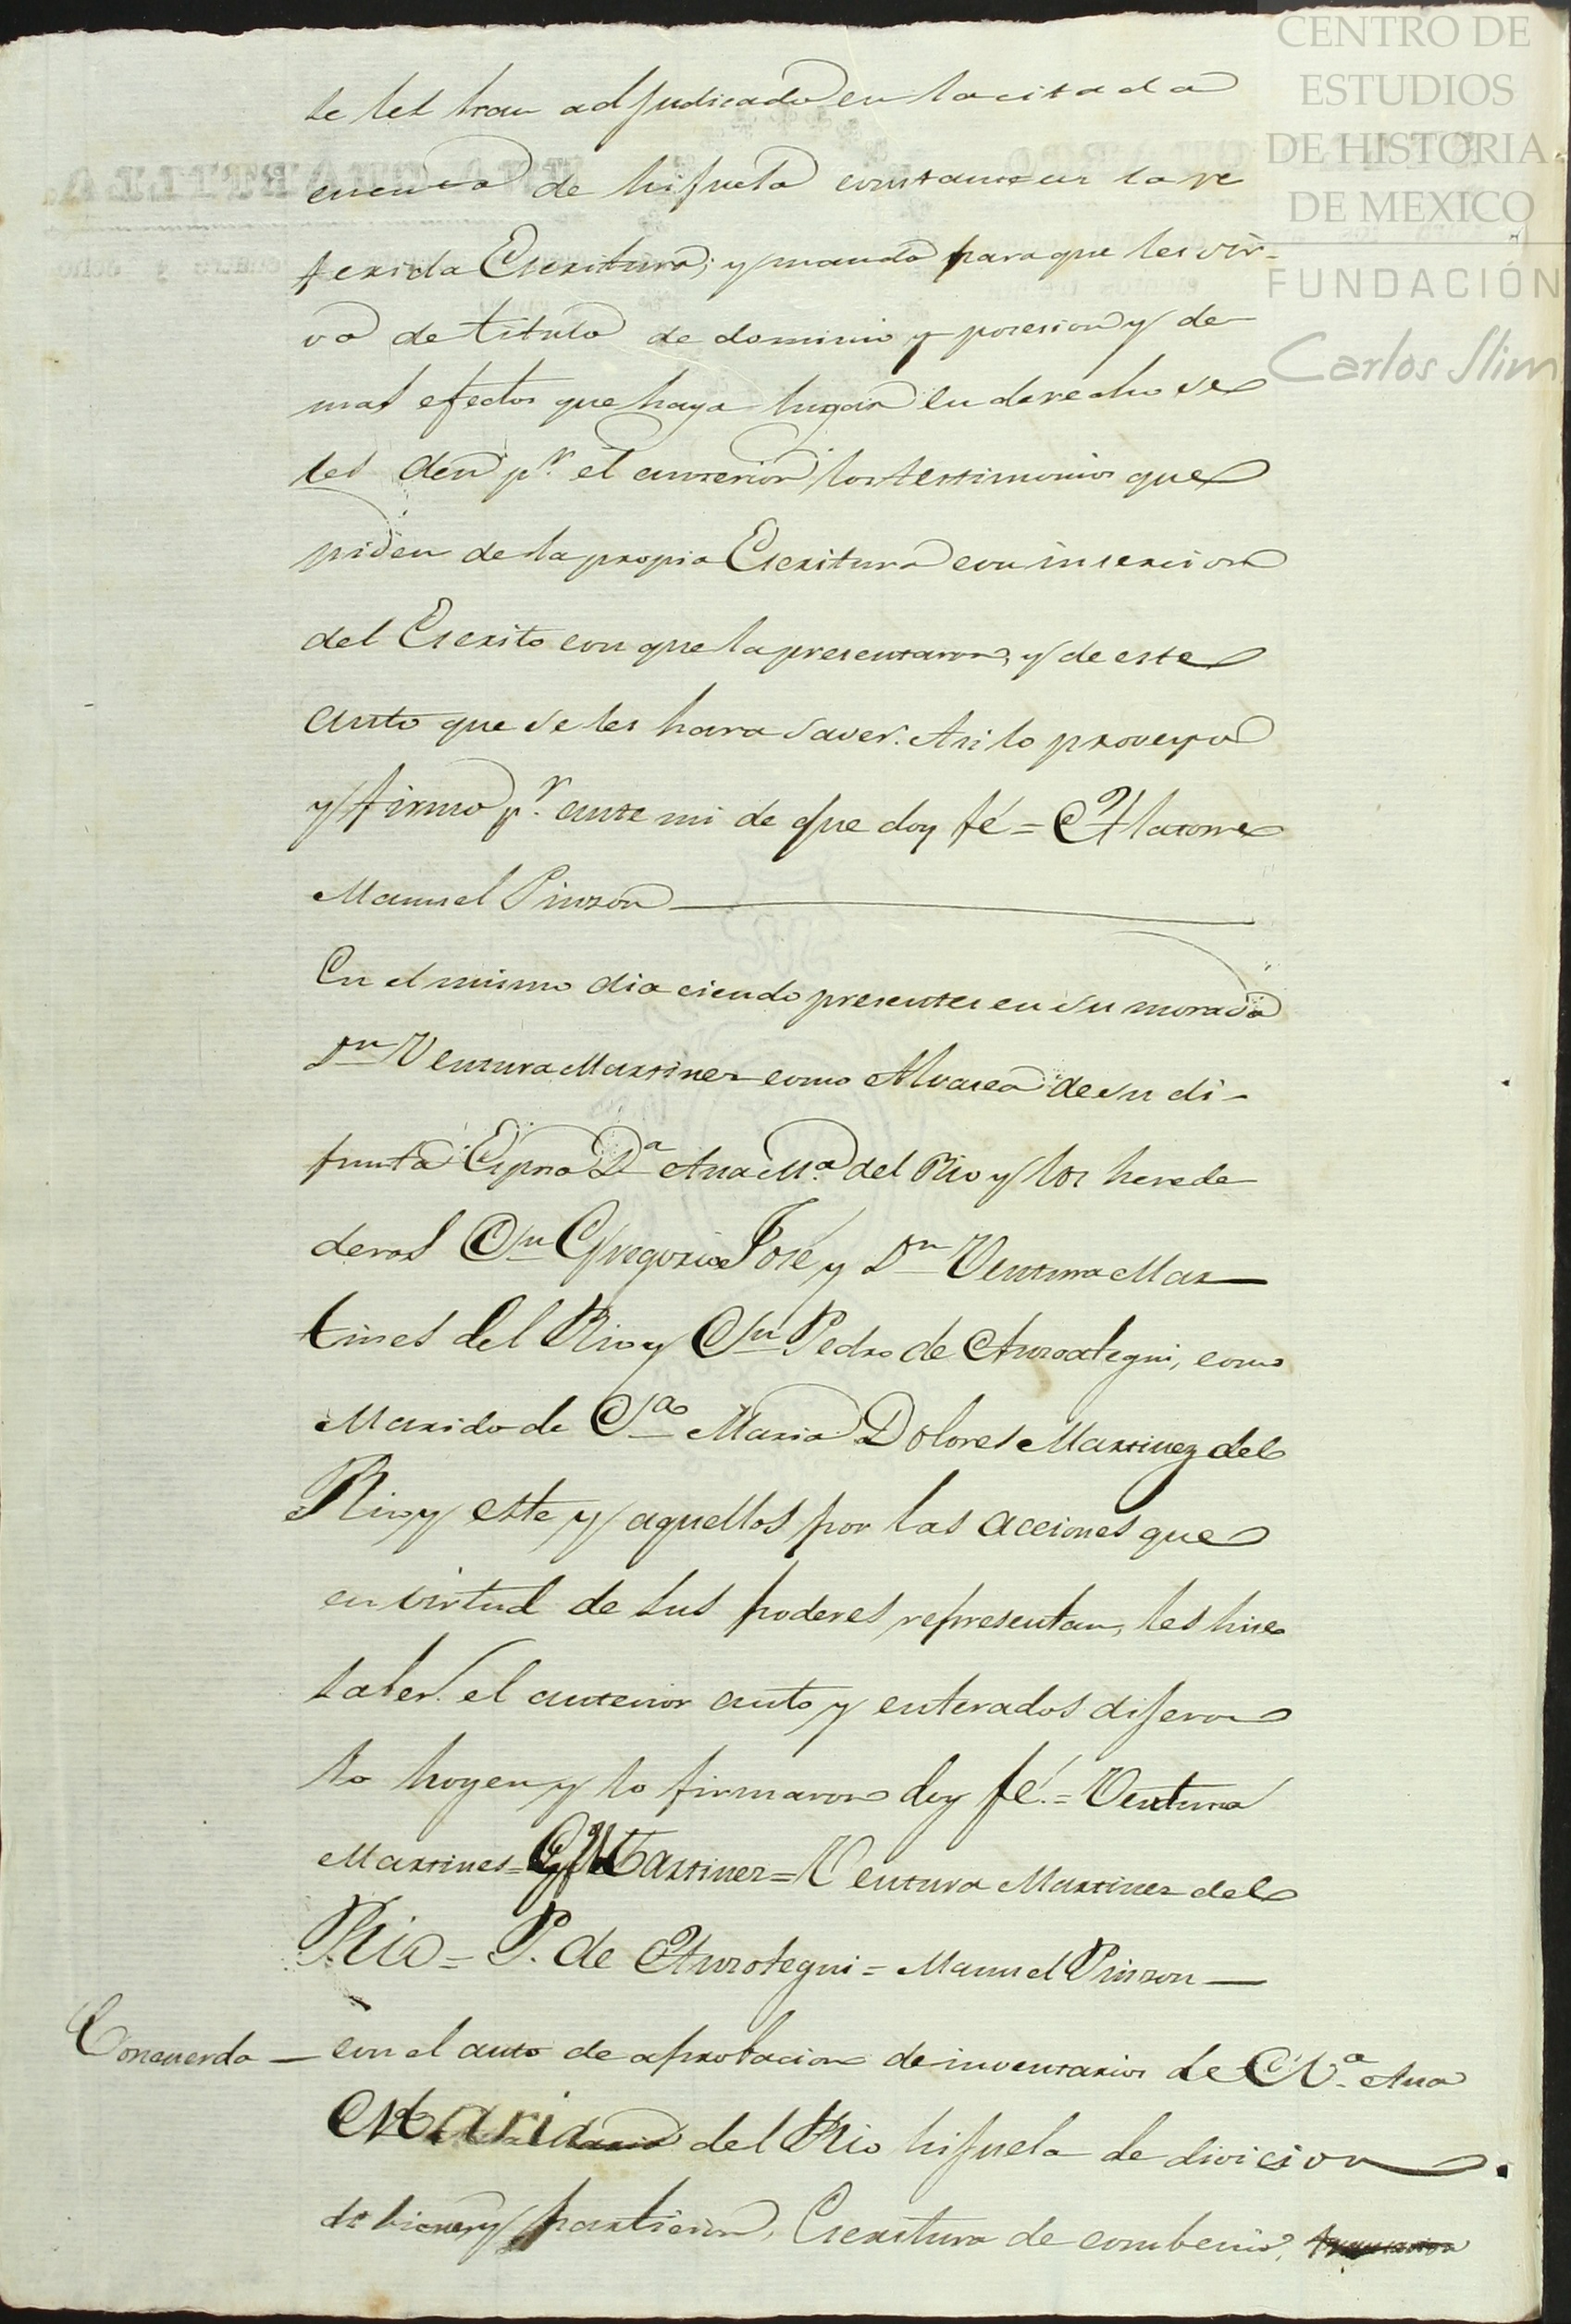 CENTRO DE
ESTUDIOS
DE HISTORIA
DE MEXICO
FUNDACIÓN
Carlos Slim
se les han adjudicado en la citada
cuenta de hijuela constante en la re
ferida Escritura; y mando para que les sir-
va de titulo de dominio y posesion y de
mas efectos que haya lugar en derecho se
les den pr. el anterior los testimonios que
piden de la propia Escritura con insercion
del Escrito con que la presentaron, y de este
auto que se les hara saver. Asi lo proveyo
y firmo pr. ante mi de que doy fé =
Manuel Pinzon
En el mismo dia ciendo presentes en su morada
Dn Ventura Martinez como Alvacea de su di-
funta Espoa Da Ana Ma. del Rio y los herede
deros Dn Gregorio José y Dn Ventura Mar
tines del Rio y Dn Pedro de Anzoategui, como
Marido de Da Maria Dolores Martinez del
Rio y este y aquellos por las acciones que
en virtud de sus poderes representan, les hise
saber el anterior auto y enterados dijeron
lo hoyen y lo firmaron doy fé. = Ventura
Martines = G Martinez = Ventura Martinez del
Rio = P. de Anzotegui = Manuel Pinzon
Concuerda — con el auto de aprobacion de inventarios de Da Ana
Maria del Rio hijuela de divicion
de bienes y particion, Escritura de combenio,